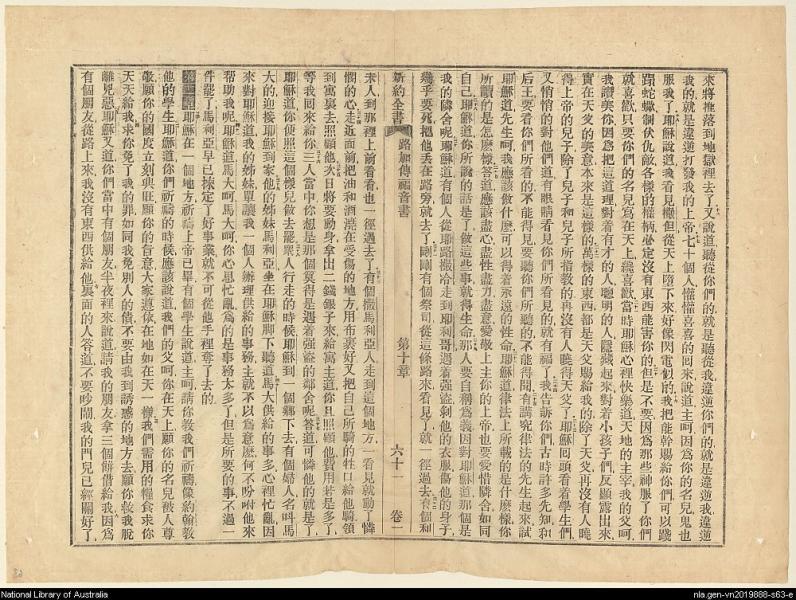 來將推落到地獄裡去了又說道聽從你們的就是聽從我違逆你們的就是違逆我違逆
我的就是違逆打發我的上帝七十個人懽懽喜喜的回來說道主呵因爲你的名兒鬼也
服我了耶穌說道我看見撒但從天上墮下來好像閃電似的我把能幹賜給你們可以踐
蹋蛇蠍制伏仇敵各樣的權柄必定沒有東西能害你的但是不要因爲那些神服了你們
就喜歡只要你們的名兒寫在天上纔喜歡當時耶穌心裡快樂道天地的主宰我的父呵
我讚美你因爲把這道理對着有才的人聰明的人隱藏起來對着小孩子們反顯露出來
實在天父的美意本來是這樣的萬樣的東西都是天父賜給我的除了天父再沒有人曉
得上帝的兒子除了兒子和兒子所指教的再沒有人曉得天父了耶穌回頭看着學生們
又悄悄的對他們道有眼睛看見你們所看見的就有福了我告訴你們古時許多先知和
后王要看你們所看的不能得見要聽你們所聽的不能得聞有講究律法的先生起來試
耶穌道先生呵我應該做什麼可以得着永遠的性命耶穌道律法上所載的是什麼樣你
所讀的是怎麼樣答道應該盡心盡性盡力盡意愛敬上主你的上帝也要愛惜隣舍如同
自己耶穌道你所說的話是了做這些事就得生命那人要自稱爲義因對耶穌道那個是
我的隣舍呢耶穌道有個人從耶路撒冷走到耶利哥遇着强盜剝他的衣服傷他的身子
幾乎要死把他丟在路旁就去了剛剛有個祭司從這條路來看見了就一徑過去有個利
新約全書 路加傳福音書 第十章 六十一 卷一
未人到那裡上前看看也一徑過去了有個撒馬利亞人走到這個地方一看見就動了憐
憫的心走近面前把油和酒澆在受傷的地方用布裹好又把自己所騎的牲口給他騎領
到寓裏去照顧他次日將要動身拿出二錢銀子來給寓主道你且照顧他費用若是多了
等我回來給你三人當中你想是那個算得是遇着强盜的鄰舍呢答道可憐他的就是了
耶穌道你便照這個樣兒做去罷衆人行走的時候耶穌到一個鄉下去有個婦人名呌馬
大的迎接耶穌到家他的姊妹馬利亞坐在耶穌脚下聽道馬大供給的事多心裡忙亂因
來對耶穌道我的姊妹單讓我一個人辦理供給的事務主就不以爲意麽何不吩咐他來
帮助我呢耶穌道馬大呵馬大呵你心思忙亂爲的是事務太多了但是所要的事不過一
件罷了馬利亞早已揀定了好事業就不可從他手裡奪了去的
第十一章耶穌在一個地方祈禱上帝已畢有個學生說道主呵請你教我們祈禱像約翰教
他的學生耶穌道你們祈禱的時候應該說道我們的父在天上願你的名兒被人尊
敬願你的國度立刻興旺願你的旨意大家遵依在地如在天一樣我們需用的糧食求你
天天給我求你免了我的罪如同我免別人的債不要由我到誘惑的地方去願你救我脫
離兇惡耶穌又道你們當中有個朋友半夜裡來說道請我的朋友拿三個餅借給我因爲
有個朋友從路上來我沒有東西供給他裏面的人答道不要吵鬧我的門兒已經關好了
National Library of Australia
nla.gen-vn2019888-s63-e